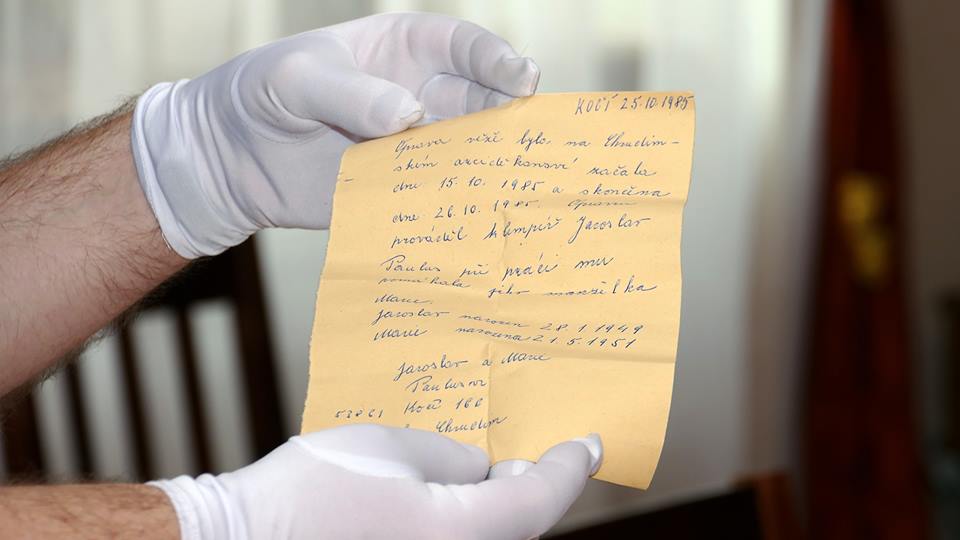 KOČÍ 25.10.1985
Oprava věže bylo, na Chrudim-
ském arciděkanové začala
dne 15.10. 1985 a skončena
dne 26.10. 1985. Opravu
prováděl klempíř Jaroslav
Paulus při práci mu
pomáhala jeho manželka
Marie.
Jaroslav narozen 28.1.1949
Marie narozena 21.5.1951
Jaroslav a Marie
Paulusovi
53861 Kočí
Chrudim